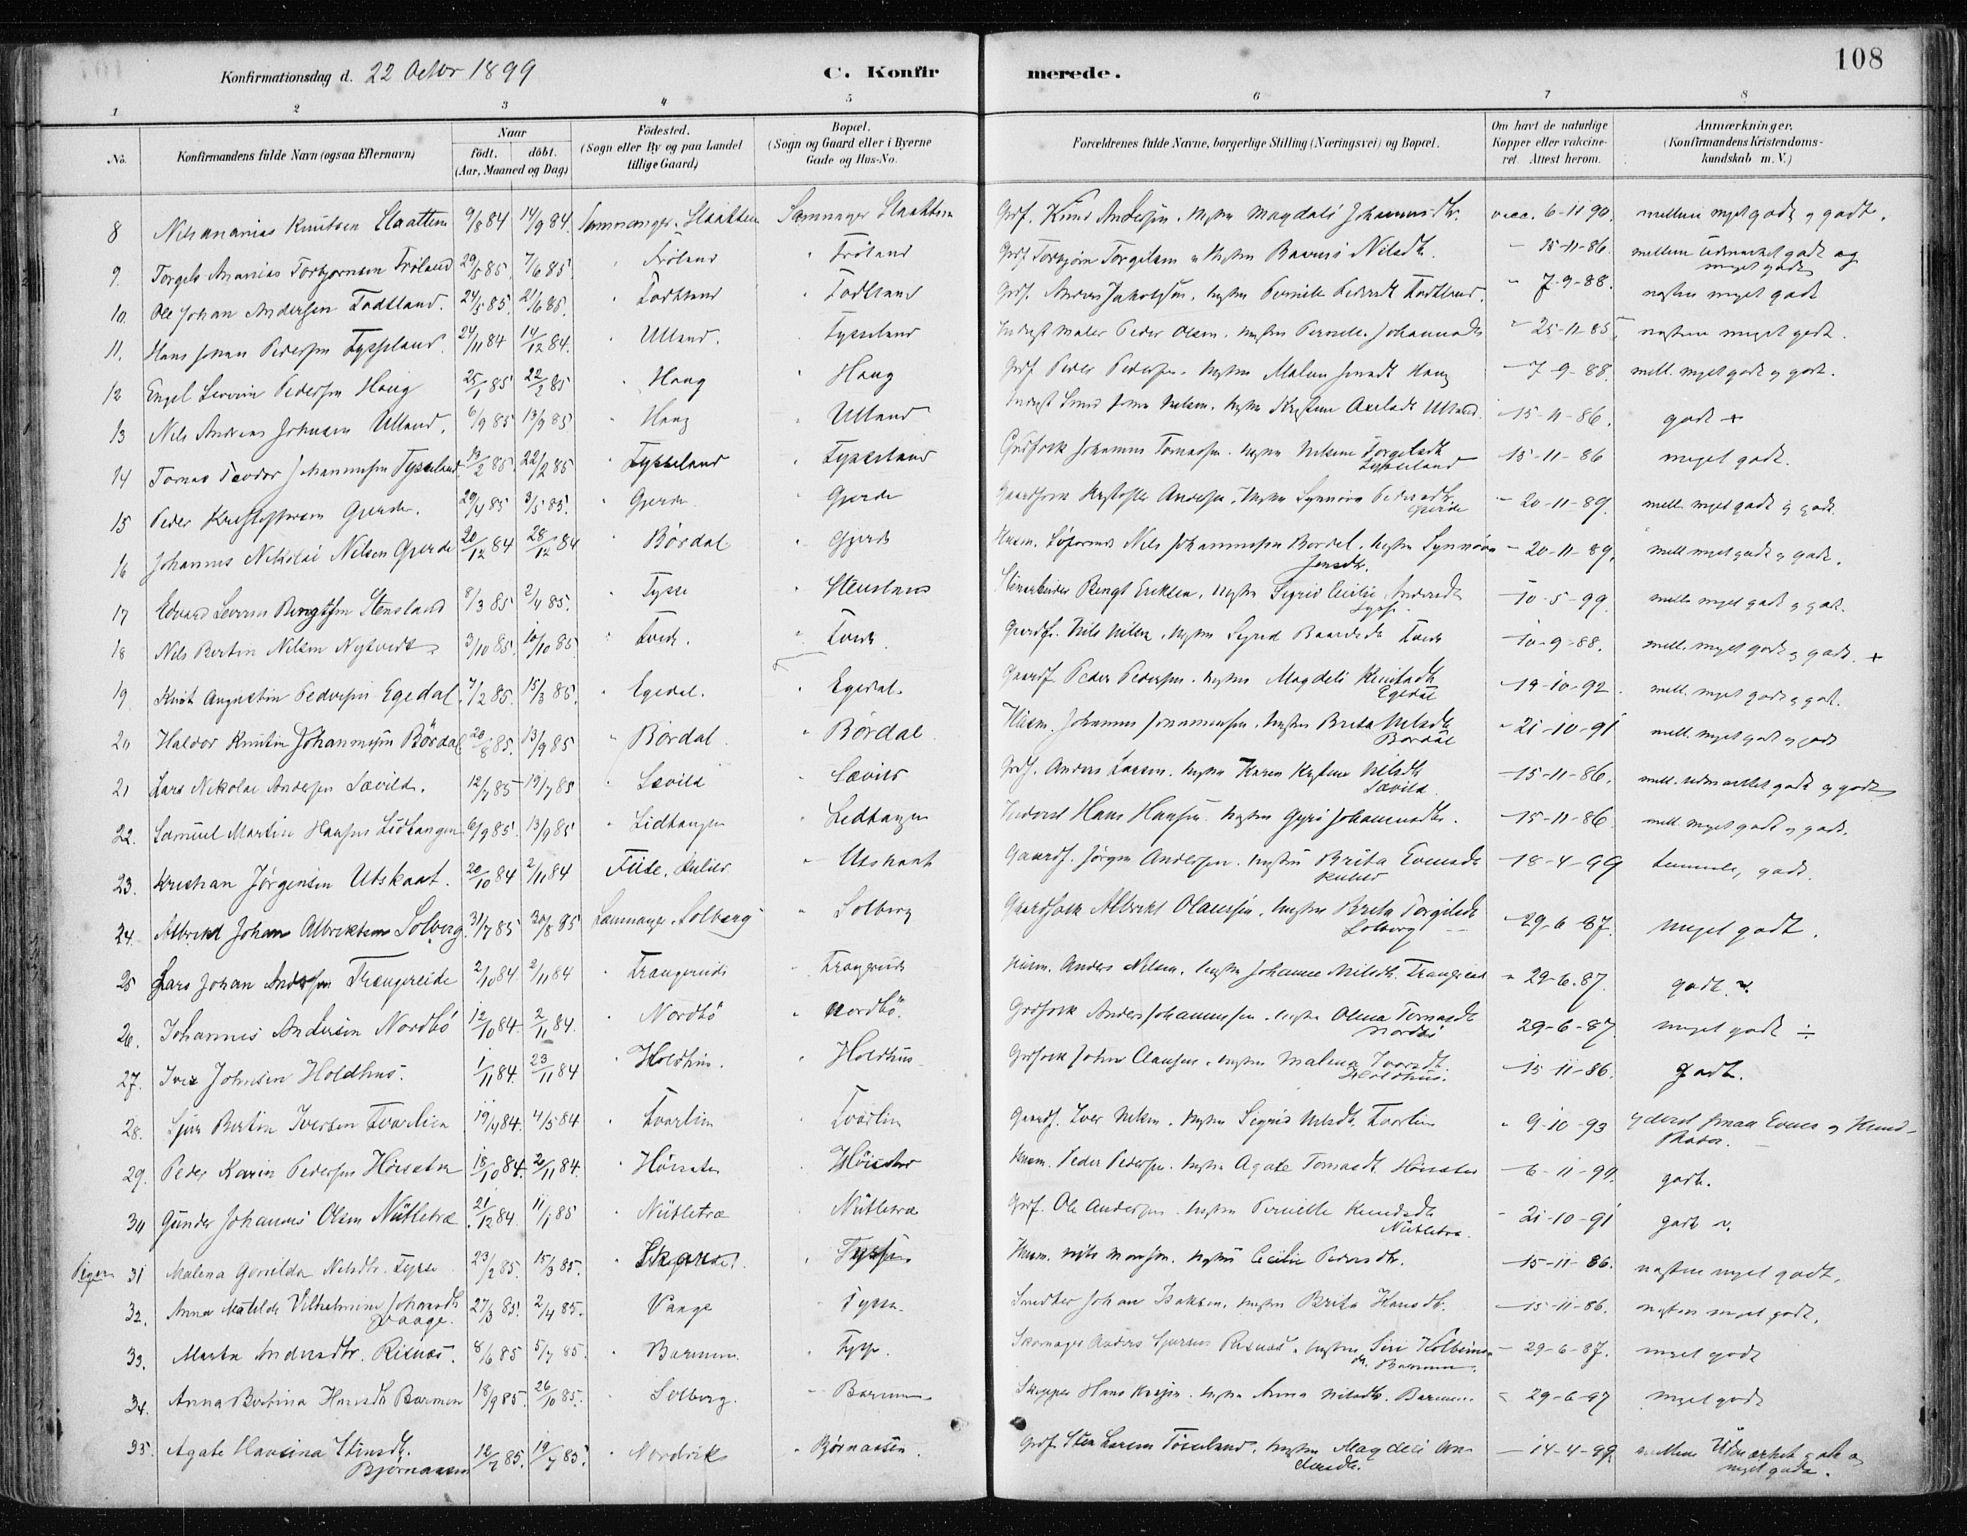 108
Konfirmationsdag d. 22 Octbr 1899 C. Konfirmerede.
1 2 3 4 5 6 7 8
No. Konfirmandens fulde Navn (ogsaa Efternavn) Naar födt. döbt. (Aar, Maaned og Dag) Födested. (Sogn eller By og paa Landet tillige Gaard) Bopæl. (Sogn og Gaard eller i Byerne Gade og Hus-No. Forældrenes fulde Navne, borgerlige Stilling (Næringsvei) og Bopæl. Om havt de naturlige Kopper eller vaccineret. Attest herom. Anmærkninger. (Konfirmandens Kristendomskundskab m. V.)
8 Nils Ananias Knutsen Slaatten 9/8 84 14/9 84 Samnanger, Slaatten Samnanger Slaatten Grdf. Knud Andersen. Hustru Magdeli Johannesdtr. vacc. 6-11 90. mellem meget godt og godt.
9. Torgels Ananias Torbjørnsen Frøland 29/5 85. 7/6 85. " Frøland " Frøland Grdf Torbjørn Torgilsen Nilsdt. – 15-11-86. mellem Udmærket godt og meget godt
10. Ole Johan Andersen Todtland. 24/5 85. 21/6 85. " Todtland " Todtland Grdf. Anders Jakobsen, hustru Pernille Pedersdt Todtland. " 7-9-88. næsten meget godt
11. Hans Johan Pedersen Tysseland. 24/11 84 14/12 84. " Ulland. " Tysseland Inderst Maler Peder Olsen. hustru Pernille Johannesdt " 25-11-85, næsten meget godt.
12 Engel Severin Pedersen Haug 25/1 85 22/2 85 " Haug " Haug Grdf Peder Pedersen. hustru Malene Haug – 7-9-88. mell. meget godt og godt.
13 Nils Andreas Johnsen Ulland. 6/9 85 13/9 85 " Haug " Ulland Inderst Smed John Nelsen. hustru Kristine Axelsdt Ulland. – 15-11-86. godt +
14 Tomas Teodor Johannesen Tysseland /2 85. 22/2 85 " Tysseland " Tysseland Grdfolk Johannes Tomassen. hustru Torgilsdt Tysseland 15-11-86 meget godt.
15 Peder Kristoffersen Gjerde. 29/4 85 3/5 85. " Gjerde " Gjerde Gaardfolk Kristoffer Andersen, hustru Synnøve Pedersdt. Gjerde – 20-11-89. mell. meget godt og godt.
16 Johannes Nikolai Nilsen Gjerde 20/12 84 28/12 84 " Børdal " Gjerde Husm. Nils Johannessen Børdal, hustru Synnøve Jensdt. – 20-11-89. mell meget godt og godt.
17 Edvard Severin Bengtsen Stensland 8/3 85 2/4 85. " Tysse " Stensland Stenarbeider Bengt Eriksen. hustru Sigrid Cecilie Andersdt Tysse. – 10-5-99 mell. meget godt og godt.
18 Nils Bertin Nilsen Nytvedt 3/10 85. 10/10 85 " Tvedt. " Tvedt. Gaardf. Nils Nilsen. hustru Sigrid Baardsdt Tvedt – 10-9-88. mell. meget godt og godt. +
19 Knut Augustin Pedersen Egedal. 7/2 85. 15/3 85. " Egedal. " Egedal. Gaardf Peder Pedersen. hustru Magdeli Knutsdt Egedal – 14-10-92. mell. meget godt og godt.
20 Haldor Knutin Johannesen Børdal 20/8 85. 13/9 85 " Børdal. " Børdal. Husm. Johannes Johannessen. hustru Brita Nelsdt. Børdal – 21-10-91 mell. meget godt og godt
21 Lars Nikolai Andersen Sævild. 12/7 85 19/7 85 " Sævild " Sævild Grdf. Anders Larsen. hustru Karen Kristine Nelsdt Sævild. – 15-11-86. mell. udmærket godt og godt
22. Samuel Martin Hansen Lidtangen 6/9 85. 13/9 85 " Lidtangen " Lidtangen Inderst Hans Hansen. hustru Gyri Johannesdt. – 15-11-86. mell. meget godt og godt.
23. Kristian Jørgensen Utskaat. 20/10 84 2/11 84 Fuse. " Utskaat Gaardf. Jørgen Andersen. hustru Brita Evensdt – 18-4-99 temmelig godt.
24. Albrikt Johan Albriktsen Solberg. 31/7 85 30/8 85 Samnanger, Solberg " Solberg Gaardfolk Albrikt Olaussen. hustru Brita Torgilsdt Solberg – 29-6-87. meget godt.
25 Lars Johan Andersen Trængereide 2/10 84 2/11 84 " Trængereide " Trængereide Husm. Anders Nilsen. hustru Johanne Nilsdt. Trængereid " 29-6-87. godt.
26. Johannes Andersen Nordbö 12/10 84. 2/11 84. " Nordbö " Nordbö. Grdfolk Anders Johannessen. hustru Olena Tomasdt Nordbö 29-6-87. meget godt ÷
27. Iver Johnsen Holdhus. 1/11 84. 23/11 84 " Holdhus. " Holdhus Grdfolk John Clausen. hustru Malena Iversdt. Holdhus. – 15-11-86. godt.
28. Sjur Bertin Iversen Tvarlien 19/4 84. 4/5 84 " Tvarlien " Tvarlien Gaardf. Iver Nilsen. hustru Sigrid Nelsdt. Tvarlien " 9-10-93 yderst smaa Evner og Kundskaber.
29. Peder Karin Pedersen Høisæter 15/10 84. 2/11 84. " Høisæter " Høisæter Husm. Peder Pedersen. hustru Agate Tomasdt. Høisæter – 6-11-90. godt.
30 Gunder Johannes Olsen Nütletræ 21/12 84. 11/1 85 " Nütletræ " Nütletræ Grdf. Ole Andersen. hustru Pernille Knudsdt Nütletræ. – 21-10-91 godt
Piger 31 Malena Gurilda Nelsdtr. Tysse 23/2 85. 15/3 85. " " Tysse Husm. Nils Monsen. hustru Cecilie Pedersdtr. – 15-11-86. næsten meget godt.
32. Anna Matilde Vilhelmine Johansdt Vaage. 27/3 85. 2/4 85. " Vaage " Tysse. Johan Isaksen. hustru Brita Hansdtr. – 15-11-86. næsten meget godt.
33. Marta Andersdtr. Risnæs. 8/6 85 5/7 85. " Barmen. " Tysse. Skomager Anders Sjursen Risnæs. hustru Siri Kolbeinsdt. Barmen. – 29-6-87. meget godt
34. Anna Bertina Hansdt. Barmen 18/9 85. 26/10 85. " Solberg. " Barmen Skipper Hans hustru Anna Nilsdtr. Barmen. " 29-6-87 meget godt
35. Agate Hansina Stensdt. Bjørnaasen 12/7 85. 19/7 85. " Nordvik " Bjørnaasen. Grdf. Sten Larsen Tøsseland. hustru Magdeli Andersdt. – 14-4-99. mellem Udmærket godt og meget godt.